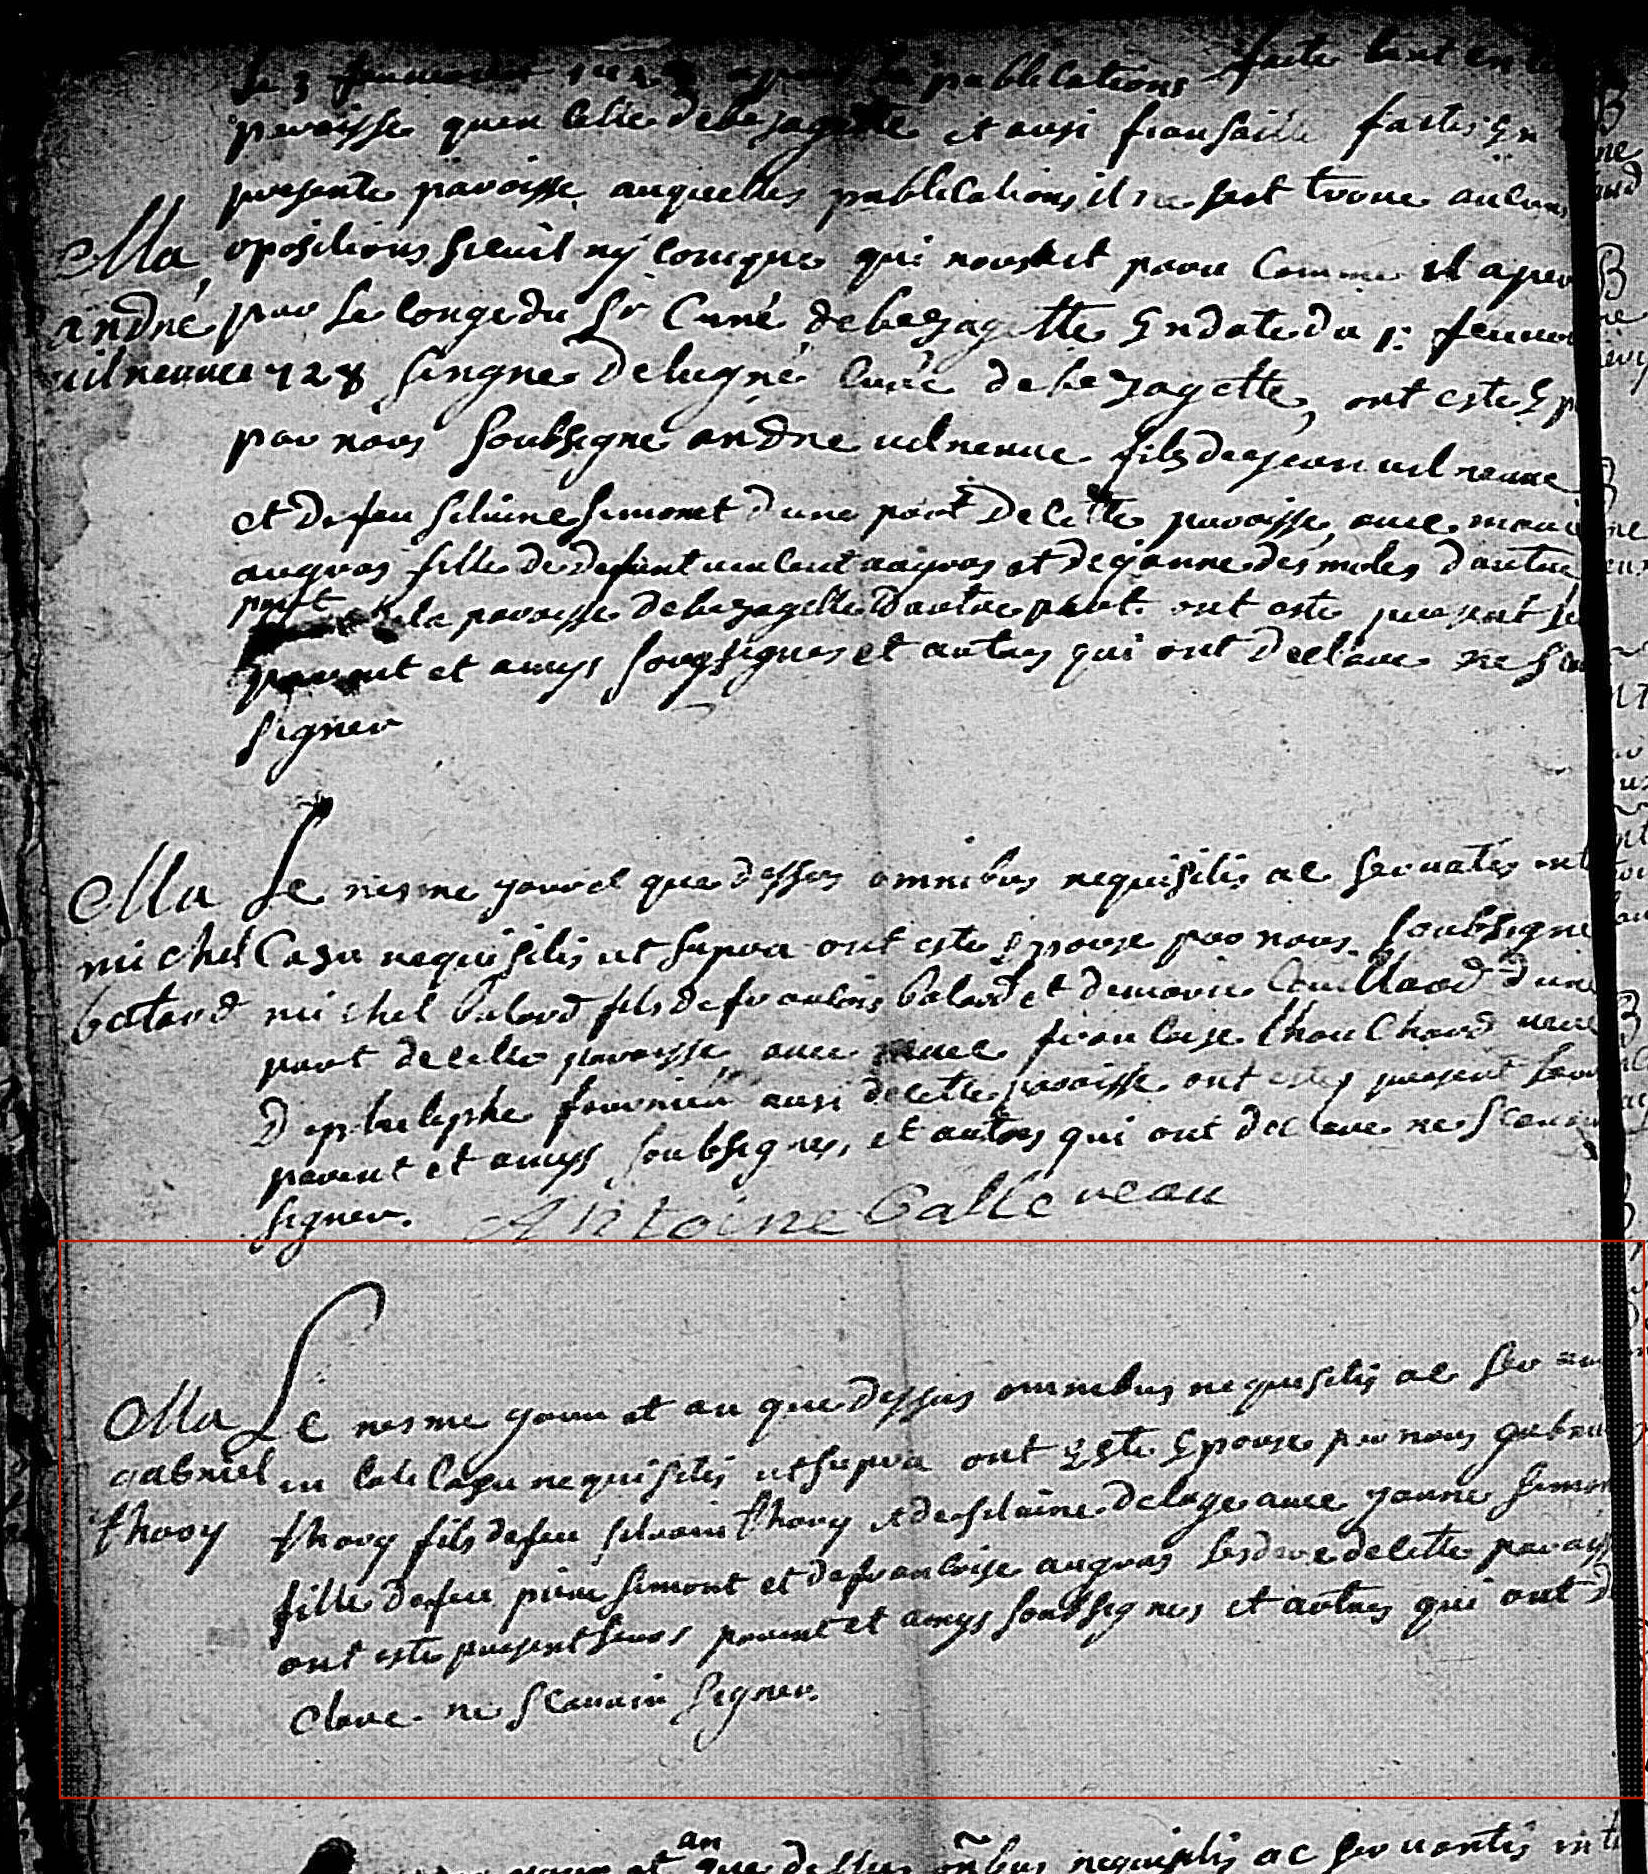 le 3 feuvrier 1728 apres la publications faite tant en
paroisse quen celle debezagette et ausi fiansaille faites En
presente paroisse auquelles publications il ne sest trouve aulcuns
Ma opositions siluil ny conique qui nous soit paru Comme il apeu
andré par le conge du Sr Curé debezagette En date du 1: feuvrier
uilneuue 728 singne Delugné curé de bezagette, ont este Ep
par nous soubsigne andre uilneuue fils de jean uilneuue
et de feu siluine simonet dune part De cette paroisse, auec marie
augras fille de defunt uincent augras et de janne desmoles dautre
part de la paroisse debezagette dautre part ont este present le
parent et amys soussignes et autres qui ont declare ne sca
signer
Ma Le mesme jour et que dessus omnibus requisitis ac seruatis int
michel Casu requisitis ut supra ont este Epouse par nous soubsigne
balard michel balard fils de francois balard et de marie couillaud dune
part de cette paroisse auec francoise thouchard ueuue
De philiphe fournier ausi de cette paroisse ont este present leur
parent et amys soubsignes, et autres qui ont declare ne scauoir
signer. Antoine Galleueau
Ma Le mesme jour et an que dessus omnibus requisitis ac ser
gabriel in tali Casu requisitis ut supra ont Este Epouse par nous gabriel
thory thory fils de feu siluain thory et de silaine delage auec janne simon
fille de feu piere simont et de francoise augras les deux de cette paroiss
ont este present leurs parent et amys soubsignes et autres qui ont d
clare ne scauoir signer.
jour et an que dessus oñbus requisitis ac seruantis in t